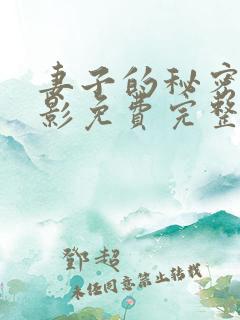 妻子的秘密
影免费完整
鄧超
未经同意禁止转载